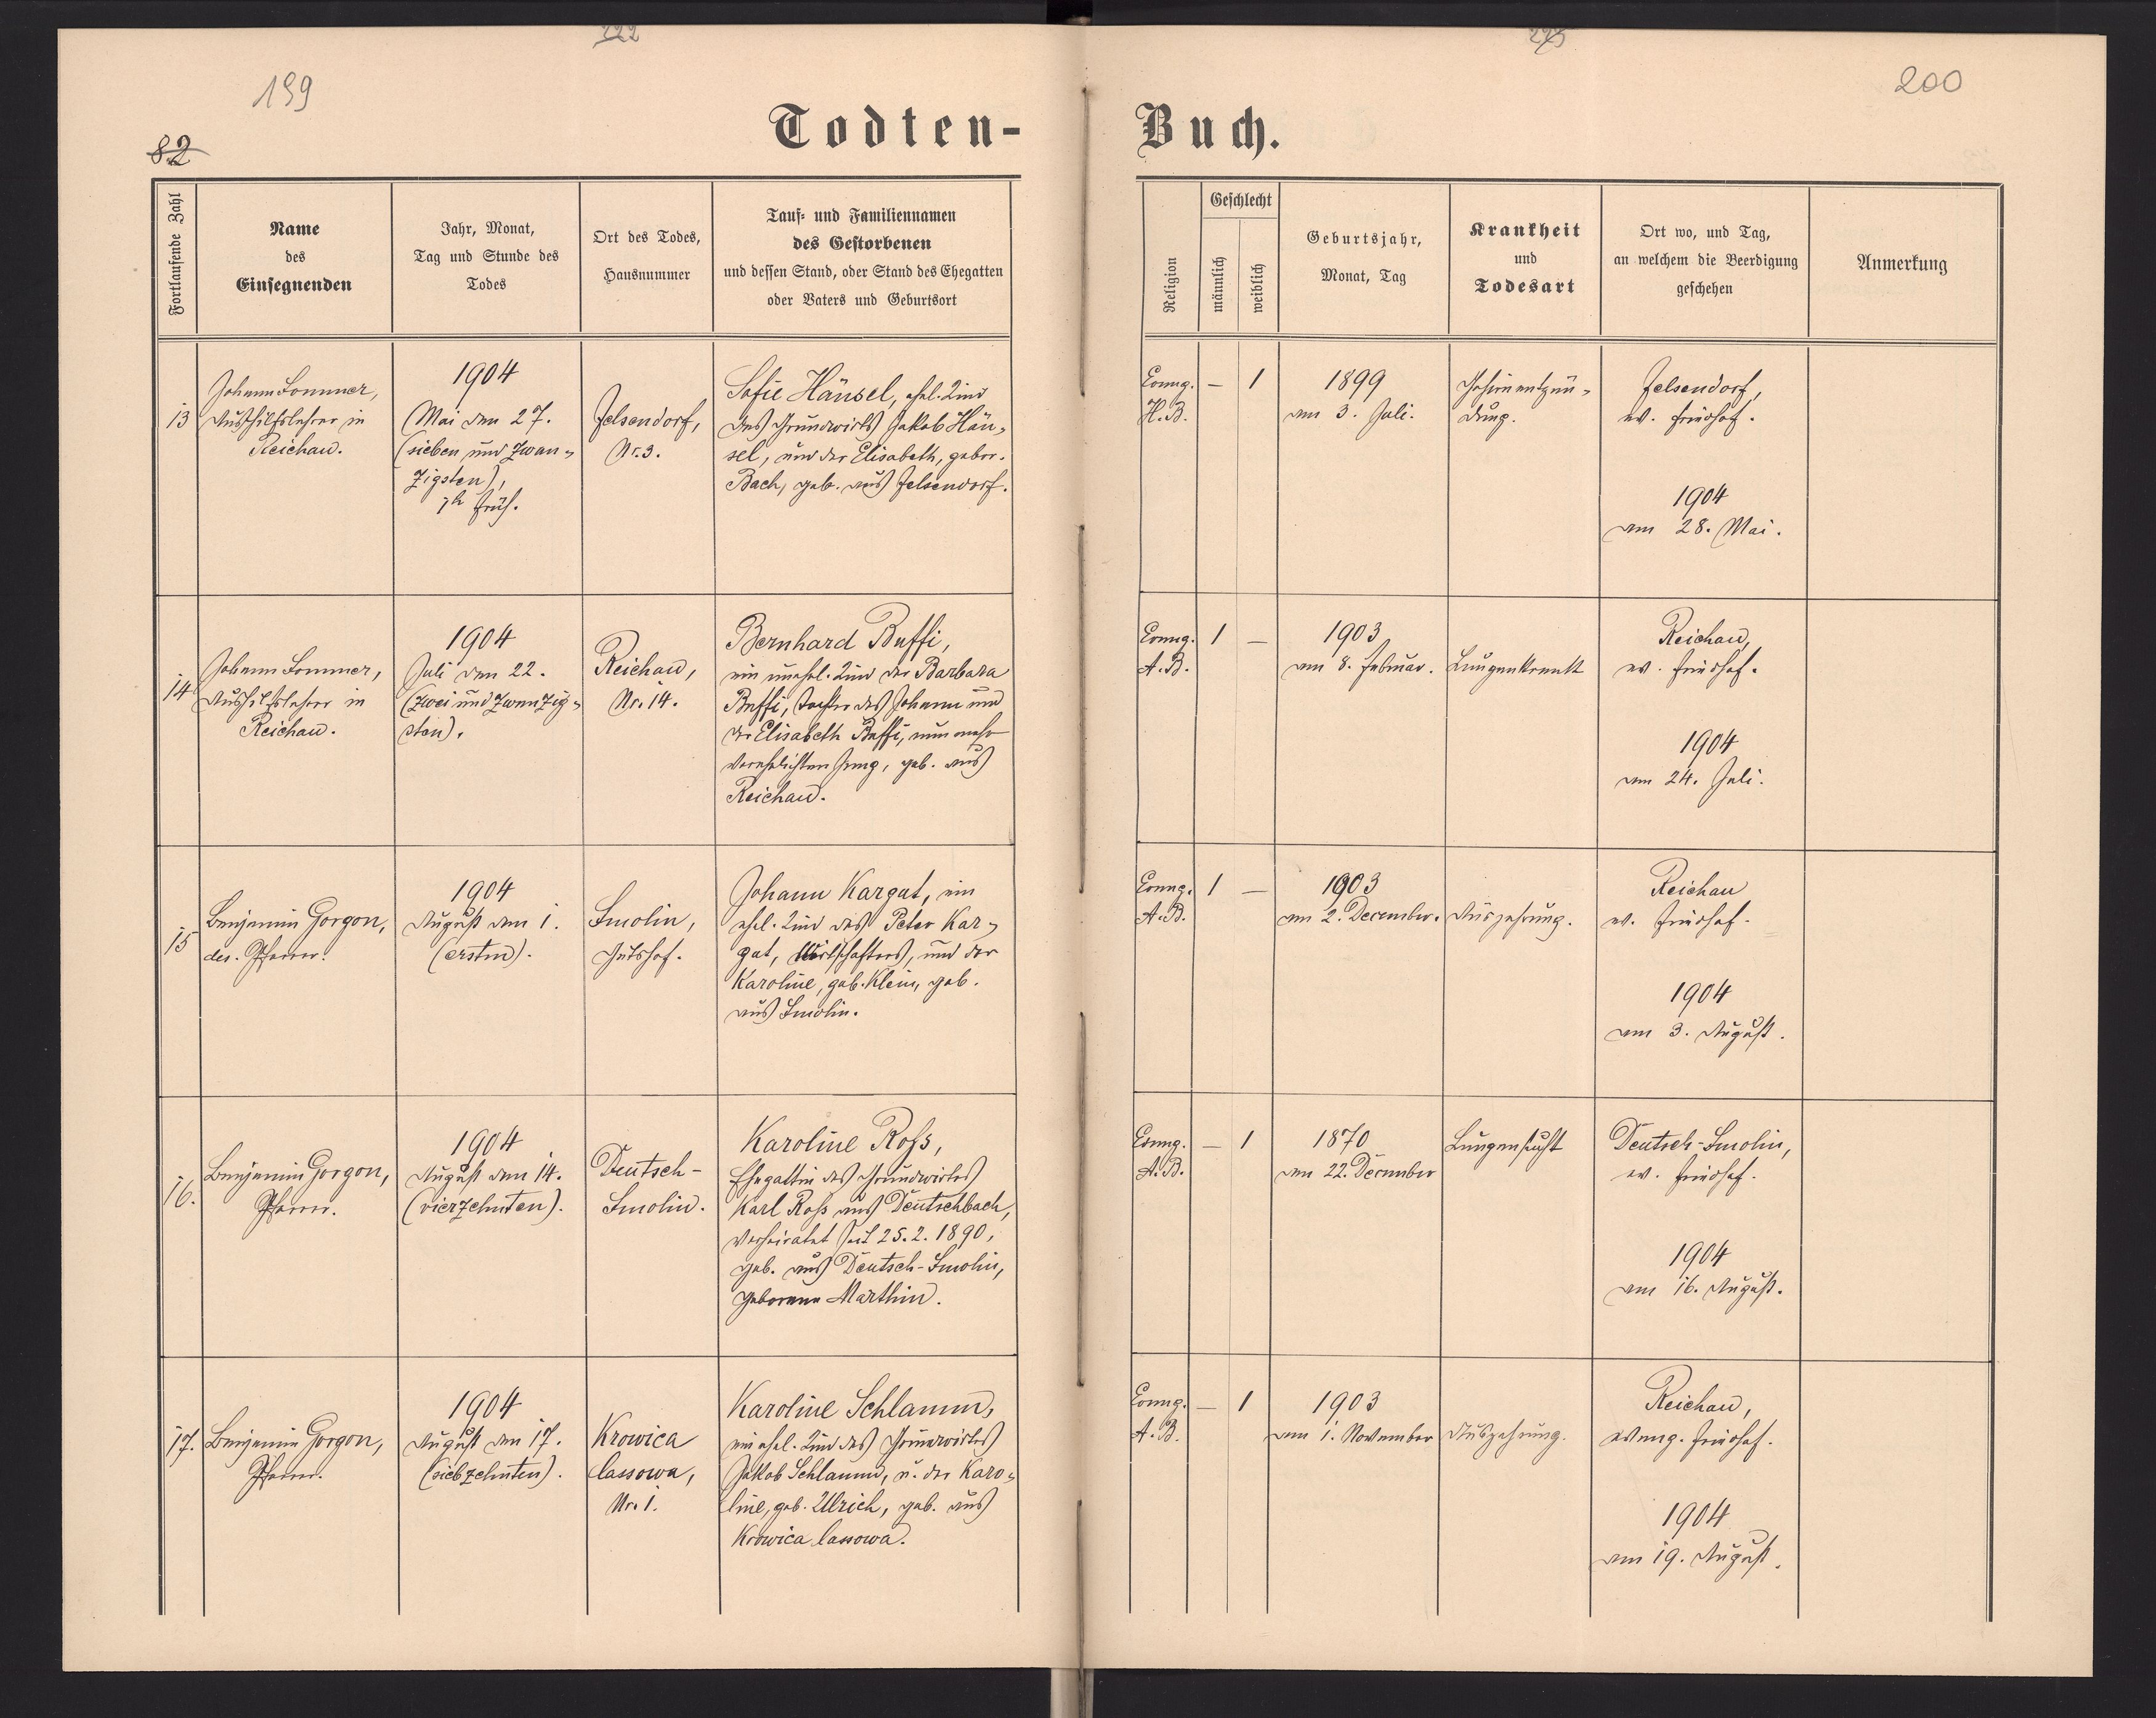 222
199
82
Todten-
Fortlaufende Zahl
Name
des
Einsegnenden
Jahr, Monat,
Tag und Stunde des
Todes
Ort des Todes,
Hausnummer
Tauf- und Familiennamen
des Gestorbenen
und dessen Stand, oder Stand des Ehegatten
oder Vaters und Geburtsort
13
Johann Sommer,
Aushilfslehrer in
Reichau.
1904
Mai den 27.
(sieben und zwan-
zigsten),
früh.
Felsendorf,
Nr. 3.
Sofie Hänsel, ehl. Kind
des Grundwirts Jakob Hän-
sel, und der Elisabeth, gebor.
Bach, geb. aus Felsendorf.
14
Johann Sommer,
Aushilfslehrer in
Reichau.
1904
Juli den 22.
(zwei und zwanzig-
sten).
Reichau,
Nr. 14.
Bernhard Buffi,
ein unehl. Kind der Barbara
Buffi, Tochter des Johann und
der Elisabeth Buffi, nunmehr
verehelichten Jung, geb. aus
Reichau.
15
Benjamin Gorgon,
des. Pfarrer.
1904
August den 1.
(ersten).
Smolin,
Gutshof.
Johann Kargat, ein
ehel. Kind des Peter Kar-
gat, Wirtschafters, und der
Karoline, geb. Klein, geb.
aus Smolin.
16.
Benjamin Gorgon,
Pfarrer.
1904
August den 14.
(vierzehnten).
Deutsch-
Smolin.
Karoline Roß,
Ehegattin des Grundwirtes
Karl Roß aus Deutschbach,
verheiratet seit 25. 2. 1890,
geb. aus Deutsch-Smolin,
geborene Marthin.
17.
Benjamin Gorgon,
Pfarrer.
1904
August den 17.
(siebzehnten).
Krowica
lassowa,
Nr. 1.
Karoline Schlamm,
ein ehel. Kind des Grundwirtes
Jakob Schlamm, u. der Karo-
line, geb. Ulrich, geb. aus
Krowica lassowa.
200
Buch.
Religion
Geschlecht
männlich
weiblich
Geburtsjahr,
Monat, Tag
Krankheit
und
Todesart
Ort wo, und Tag,
an welchem die Beerdigung
geschehen
Anmerkung
Evang.
H. B.
— 1
1899
am 3. Juli.
Gehirnentzün-
dung.
Felsendorf,
ev. Friedhof.
1904
am 28. Mai.
Evang.
A. B.
1 —
1903
am 8. Februar.
Lungenkrank
Reichau,
ev. Friedhof.
1904
am 24. Juli.
Evang.
A. B.
1 —
1903
am 2. December.
Auszehrung.
Reichau
ev. Friedhof.
1904
am 3. August.
Evang.
A. B.
— 1
1870
am 22. December
Lungensucht
Deutsch-Smolin,
ev. Friedhof.
1904
am 16. August.
Evang.
A. B.
— 1
1903
am 1. November
Auszehrung.
Reichau,
evang. Friedhof.
1904
am 19. August.